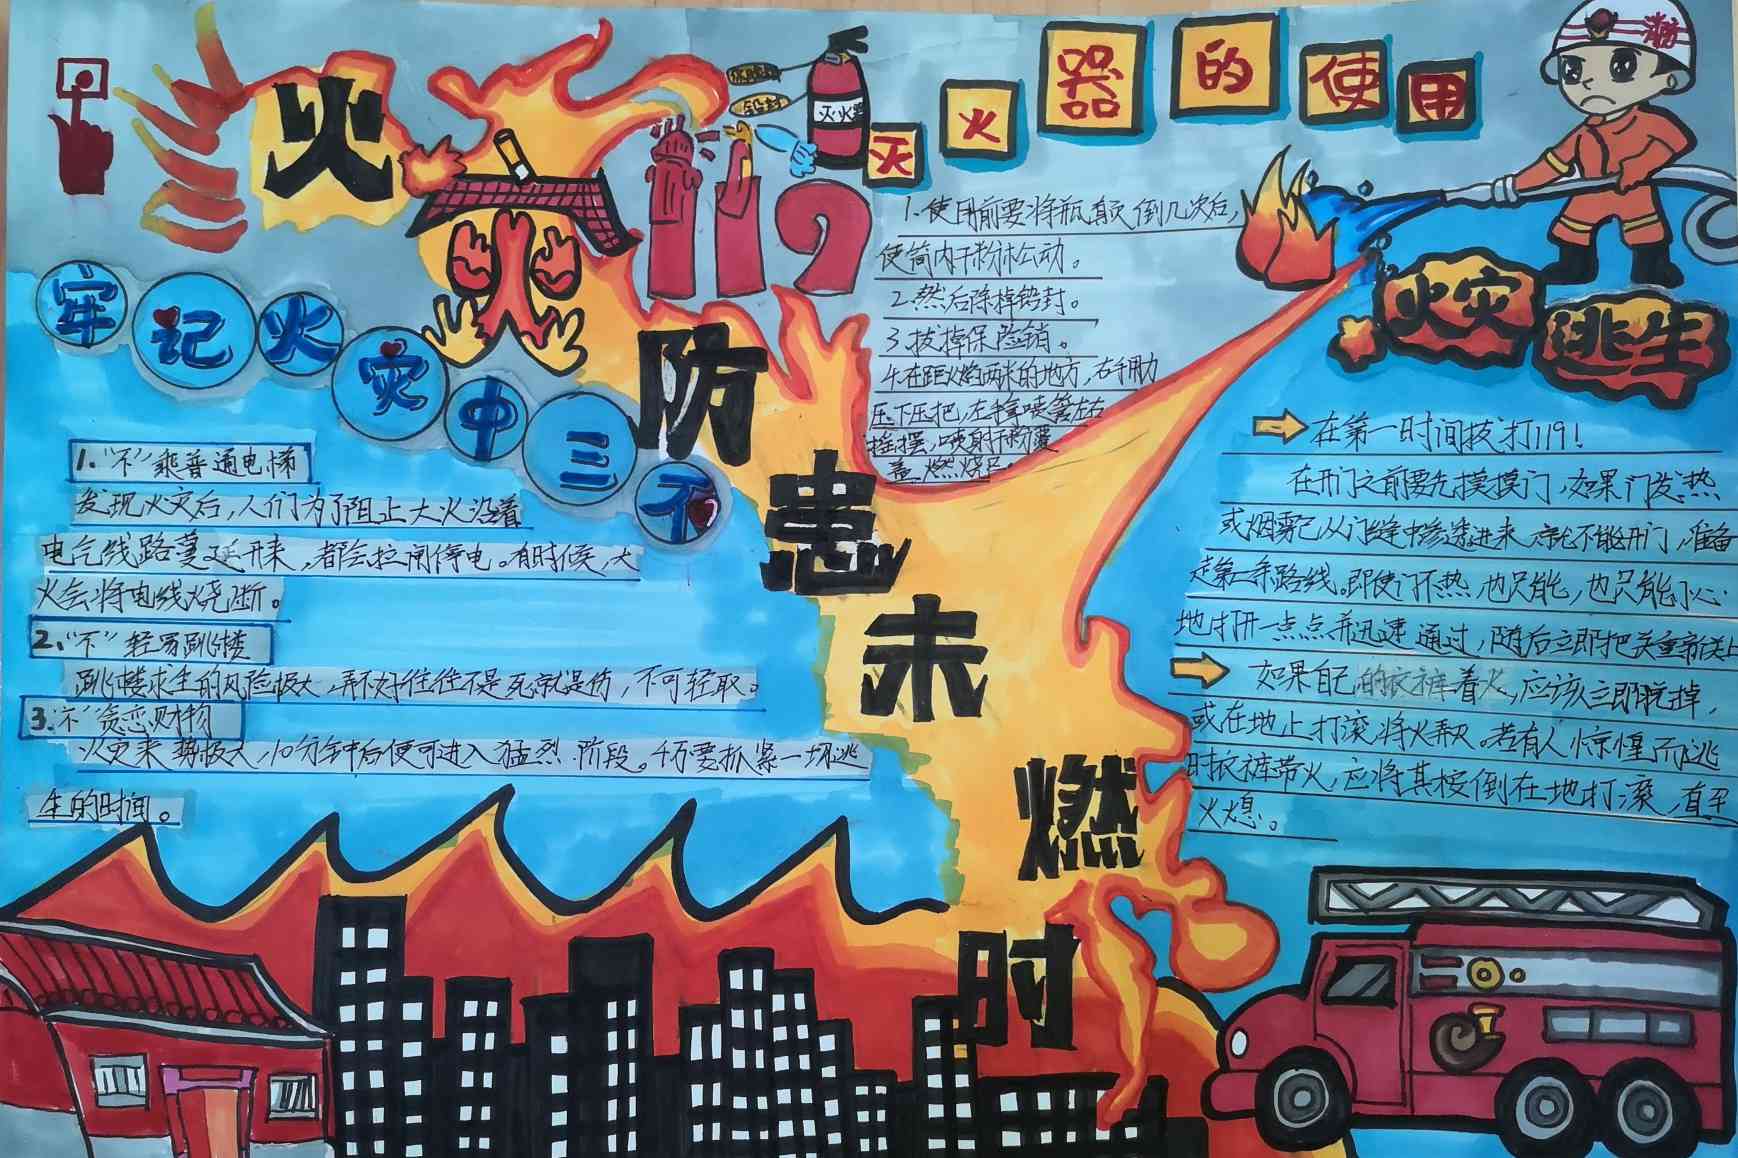 火灾
防
患
未
燃
时
119
灭火器
铅封
灭火器的使用
1.使用前要将瓶颠倒几次后，
使筒内干粉松动。
2.然后除掉铅封。
3.拔掉保险销。
4.在距火焰两米的地方，右手用力
压下压把，左手拿喷管左右
摇摆，喷射干粉覆
盖燃烧区。
牢记火灾中三不
1.“不”乘普通电梯
发现火灾后，人们为了阻止大火沿着
电气线路蔓延开来，都会拉闸停电。有时候，大
火会将电线烧断。
2.“不”轻易跳楼
跳楼求生的风险极大，弄不好往往不是死就是伤，不可轻取。
3.“不”贪恋财物
火灾来势极大，10分钟后便可进入猛烈阶段。千万要抓紧一切逃
生的时间。
消防
火灾
逃生
在第一时间拔打119！
在开门之前要先摸摸门，如果门发热
或烟雾已从门缝中渗透进来，就不能开门，准备
走第二条路线。即使门不热，也只能，也只能小心
地打开一点点并迅速通过，随后立即把关重新关上
如果自己的衣裤着火，应该立即脱掉，
或在地上打滚将火熄灭。若有人惊惶而逃
时衣裤带火，应将其按倒在地打滚，直至
火熄。